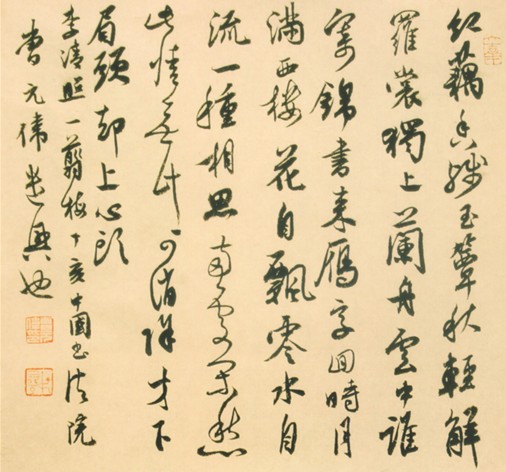 紅藕香殘玉簟秋輕解
羅裳獨上蘭舟雲中誰
寄錦書来鴈字回時月
滿西樓花自飄零水自
流一種相思兩處閒愁
此情無計可消除才下
眉頭却上心頭
李清照一翦梅丁亥中國书法院
曹元偉遣興也